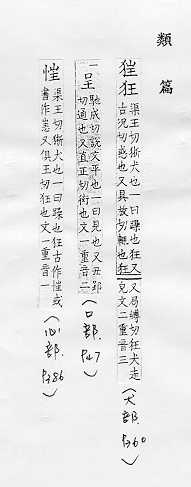 類篇
狴狂 渠王切狾犬也一曰躁也狂古作
古況切惑也又具放切輒也狂又局縛切狂犬走
皃文二重音三
(犬部.p360)
一呈 馳成切說文平也一曰見也又丑郢
切通也又直正切衒也文一重音二
(口部.p47)
㤮 渠王切狾犬也一曰躁也狂古作㤮或
書作恚又俱王切狂也文一重音二
(心部.p386)